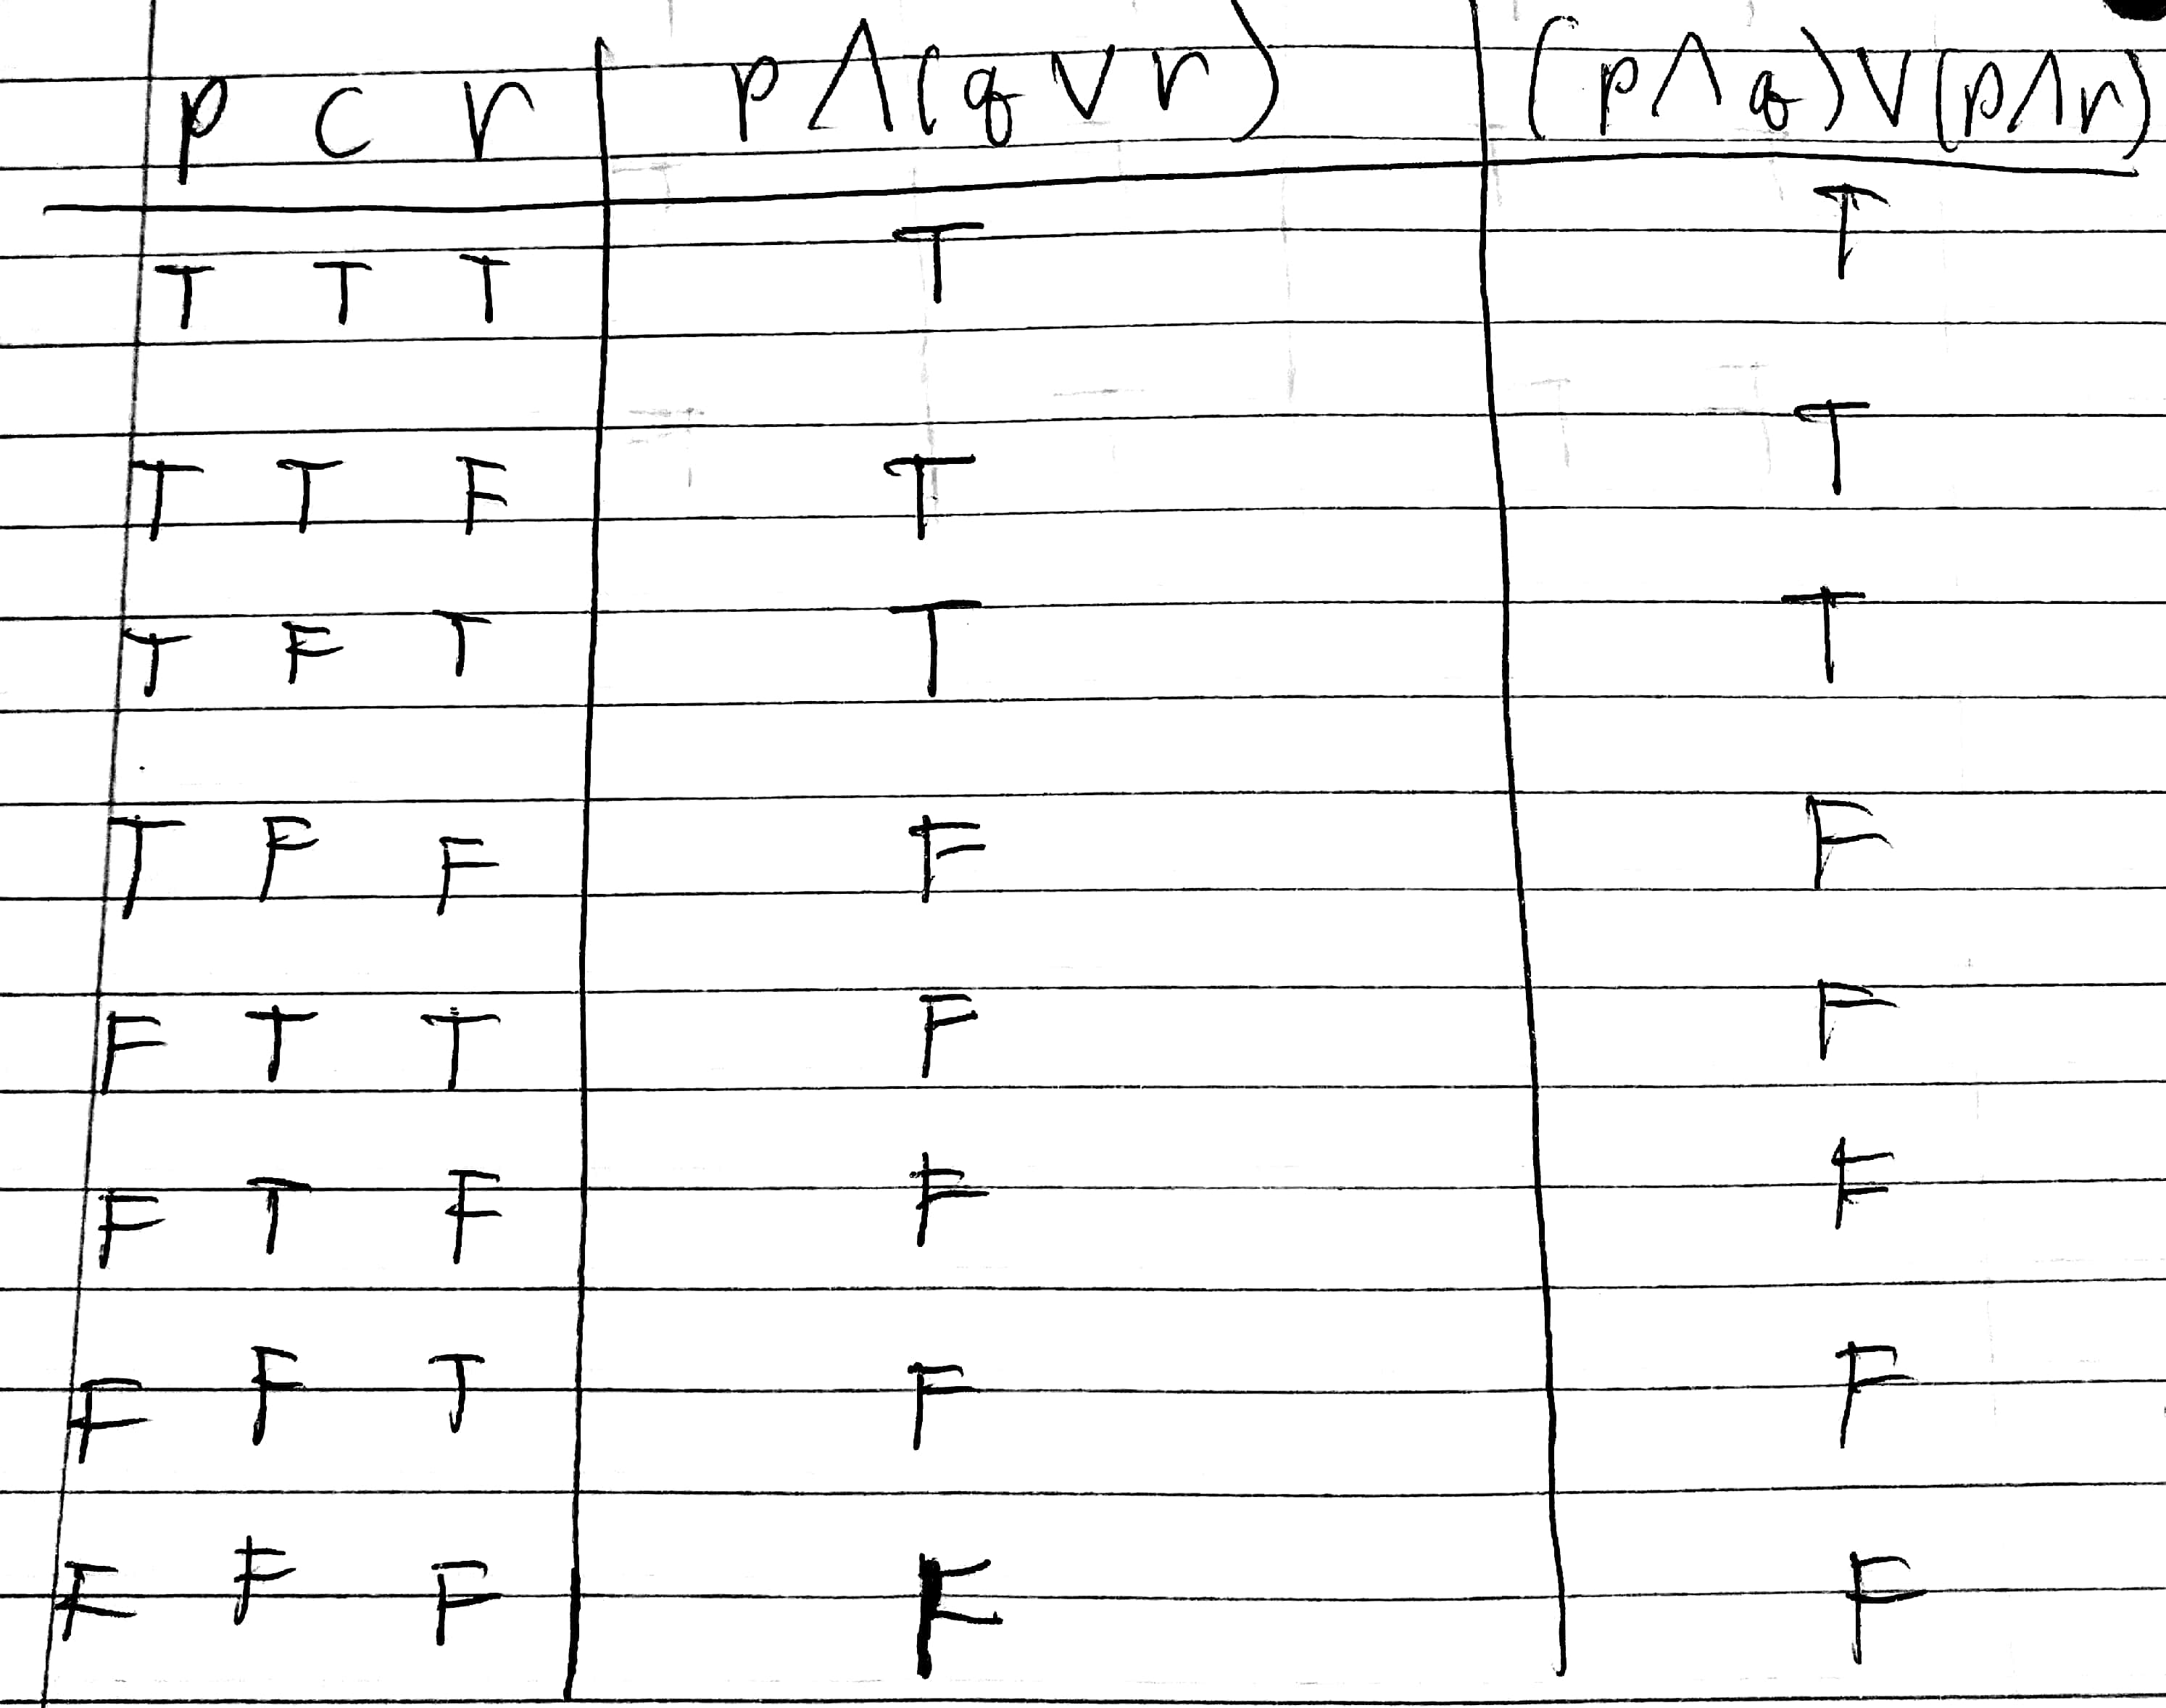 p c r p∧(q∨r) (p∧q)∨(p∧r)
T T T T T
T T F T T
T F T T T
T F F F F
F T T F F
F T F F F
F F T F F
F F F F F